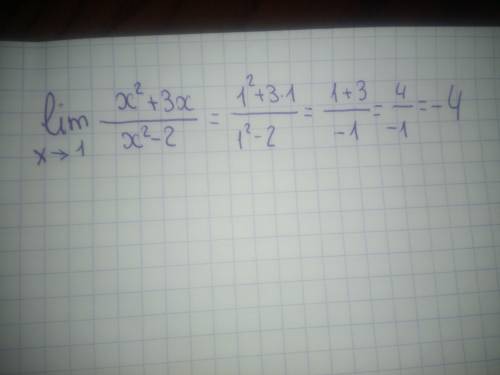 lim x→1 (x²+3x)/(x²-2) = (1²+3·1)/(1²-2) = (1+3)/(-1) = 4/(-1) = -4